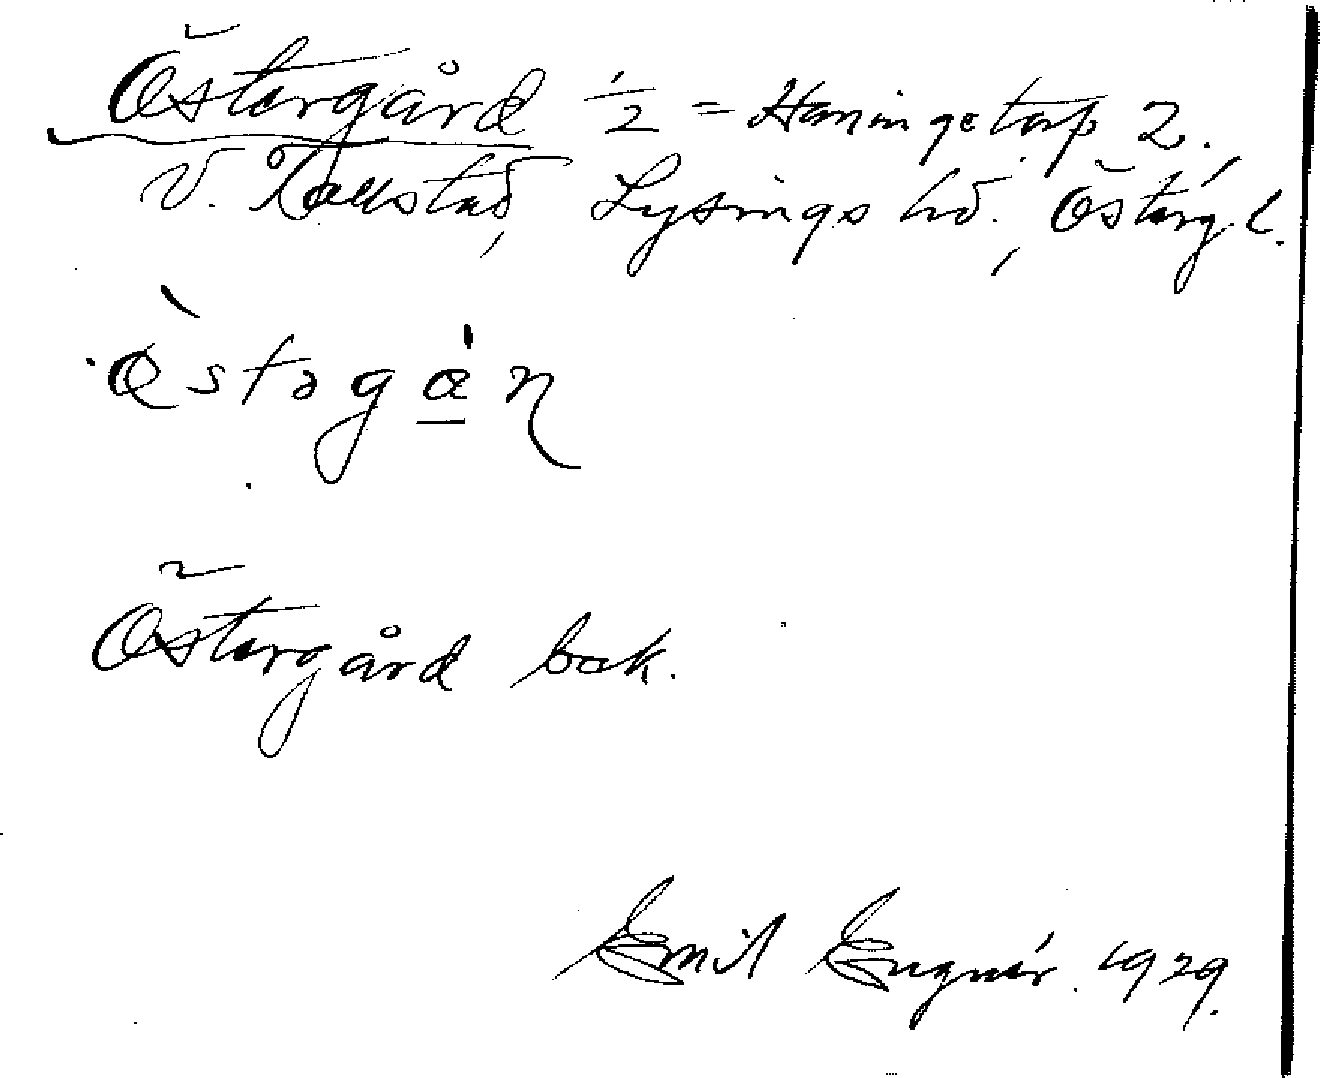 Östergård 1/2 = Haningetorp 2.
V. Tollstad, Lysings hd., Österg. l.
Östergård bok.
Emil Engnér. 1929.